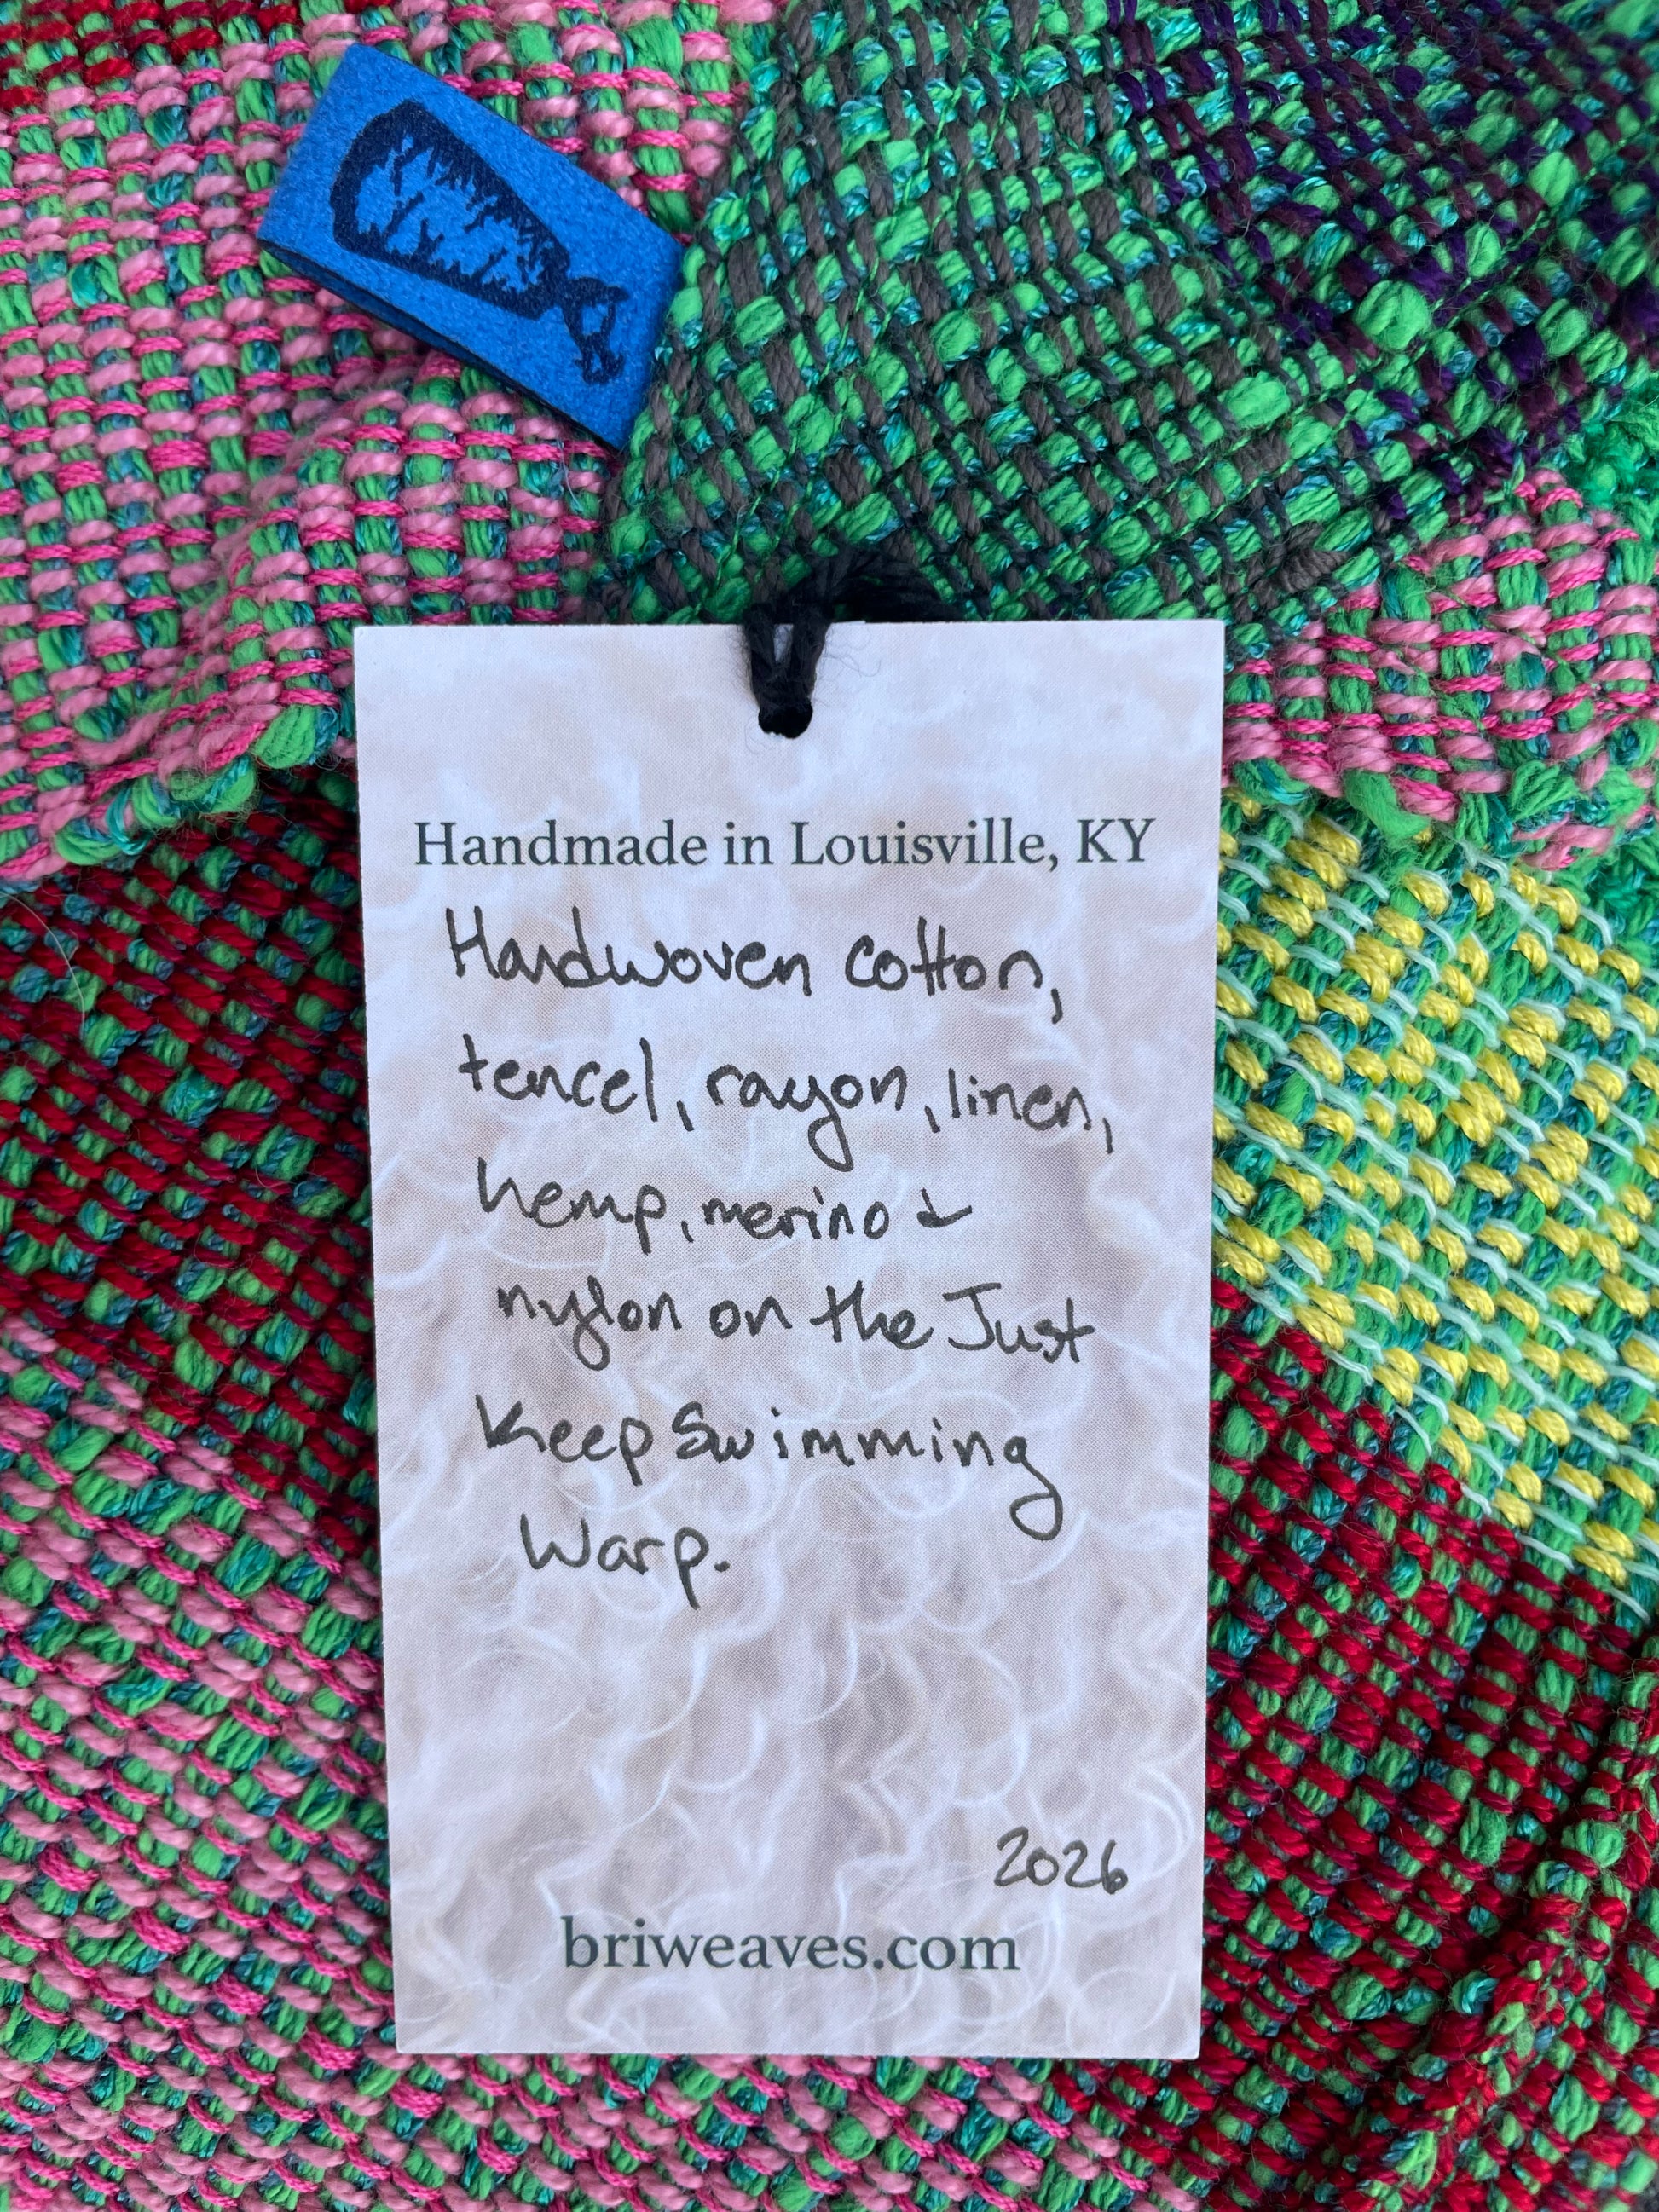 Handmade in Louisville, KY
Handwoven cotton,
tencel, rayon, linen,
hemp, merino &
nylon on the Just
Keep Swimming
Warp.
2026
briweaves.com